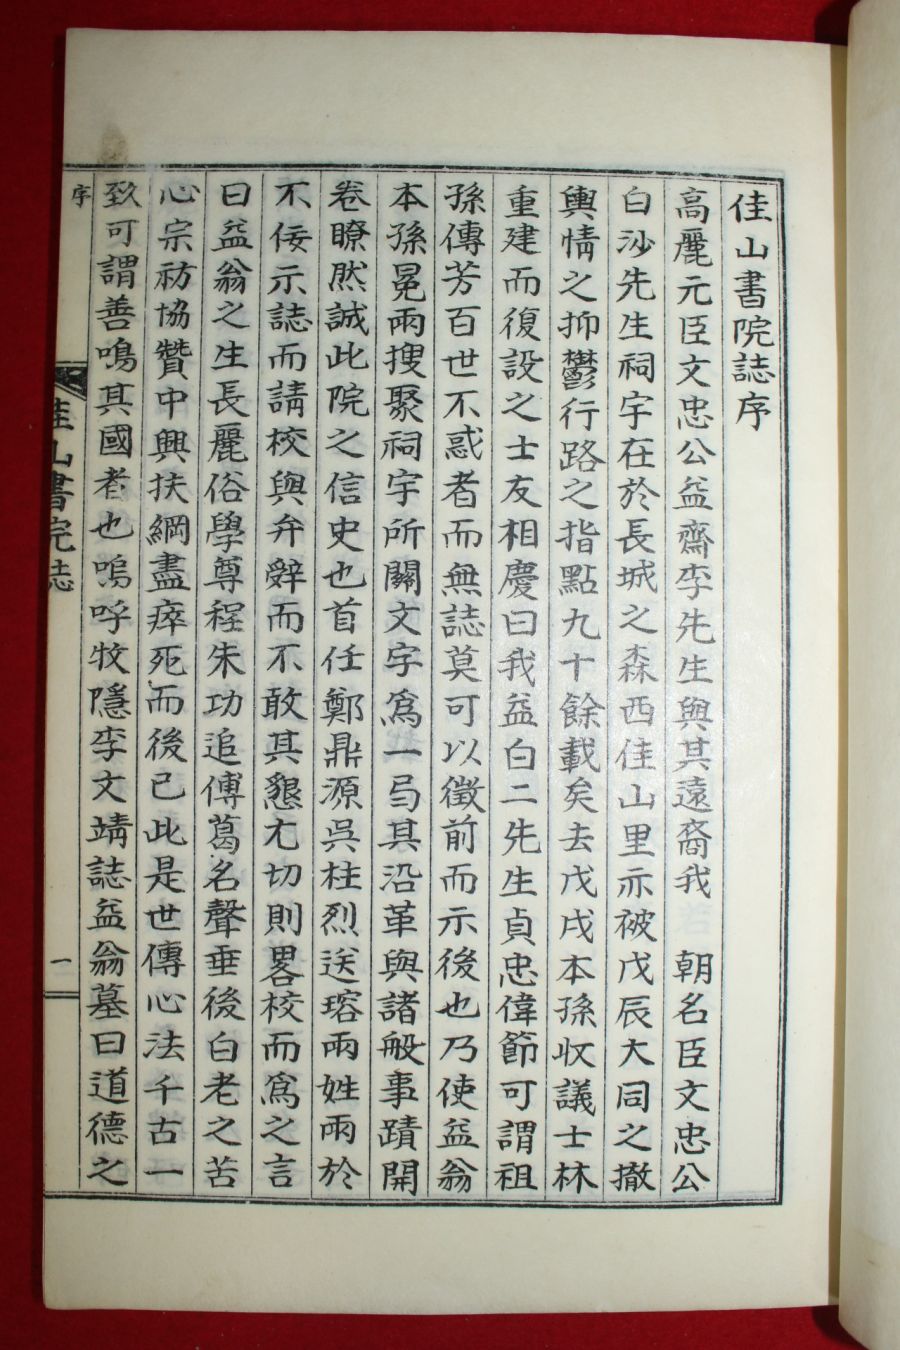 佳山書院誌序
高麗元臣文忠公益齋李先生與其遠裔我　朝名臣文忠公
白沙先生祠宇在於長城之森西佳山里亦被戊辰大同之撤
輿情之抑鬱行路之指點九十餘載矣去戊戌本孫收議士林
重建而復設之士友相慶曰我益白二先生貞忠偉節可謂祖
孫傳芳百世不惑者而無誌莫可以徵前而示後也乃使益翁
本孫冕雨搜聚祠宇所關文字爲一弓其沿革與諸般事蹟開
卷瞭然誠此院之信史也首任鄭鼎源吳柱烈送瑢雨姓雨於
不佞示誌而請校與弁辭而不敢其懇尤切則畧校而爲之言
曰益翁之生長麗俗學尊程朱功追傅葛名聲垂後白老之苦
心宗祊協贊中興扶綱盡瘁死而後已此是世傳心法千古一
致可謂善鳴其國者也嗚呼牧隱李文靖誌益翁墓曰道德之
序
佳山書院誌
一